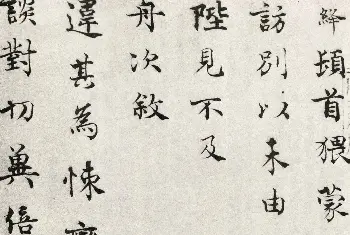 絳頓首猥蒙
訪別以未由
陛見不及
舟次敘
違其為悚
談對切冀倍